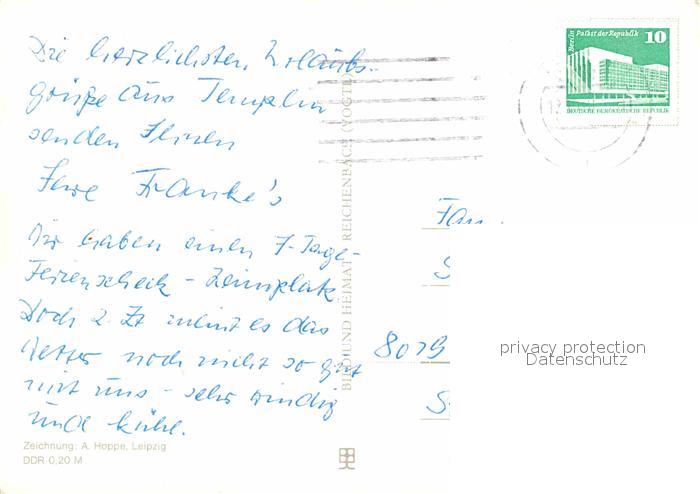 Die herzlichsten Urlaubs-
grüße aus Templin
senden Ihnen
Ihre Franke's
Wir haben einen 7-Tage-
Ferienscheck - Zeltplatz
Doch z. Zt meint es das
Wetter noch nicht so gut
mit uns - sehr windig
und kühl.
Zeichnung: A. Hoppe, Leipzig
DDR 0,20 M
BILD UND HEIMAT REICHENBACH (VOGTL
Berlin Palast der Republik
10
DEUTSCHE DEMOKRATISCHE REPUBLIK
Fam.
S
8019
S
privacy protection
Datenschutz